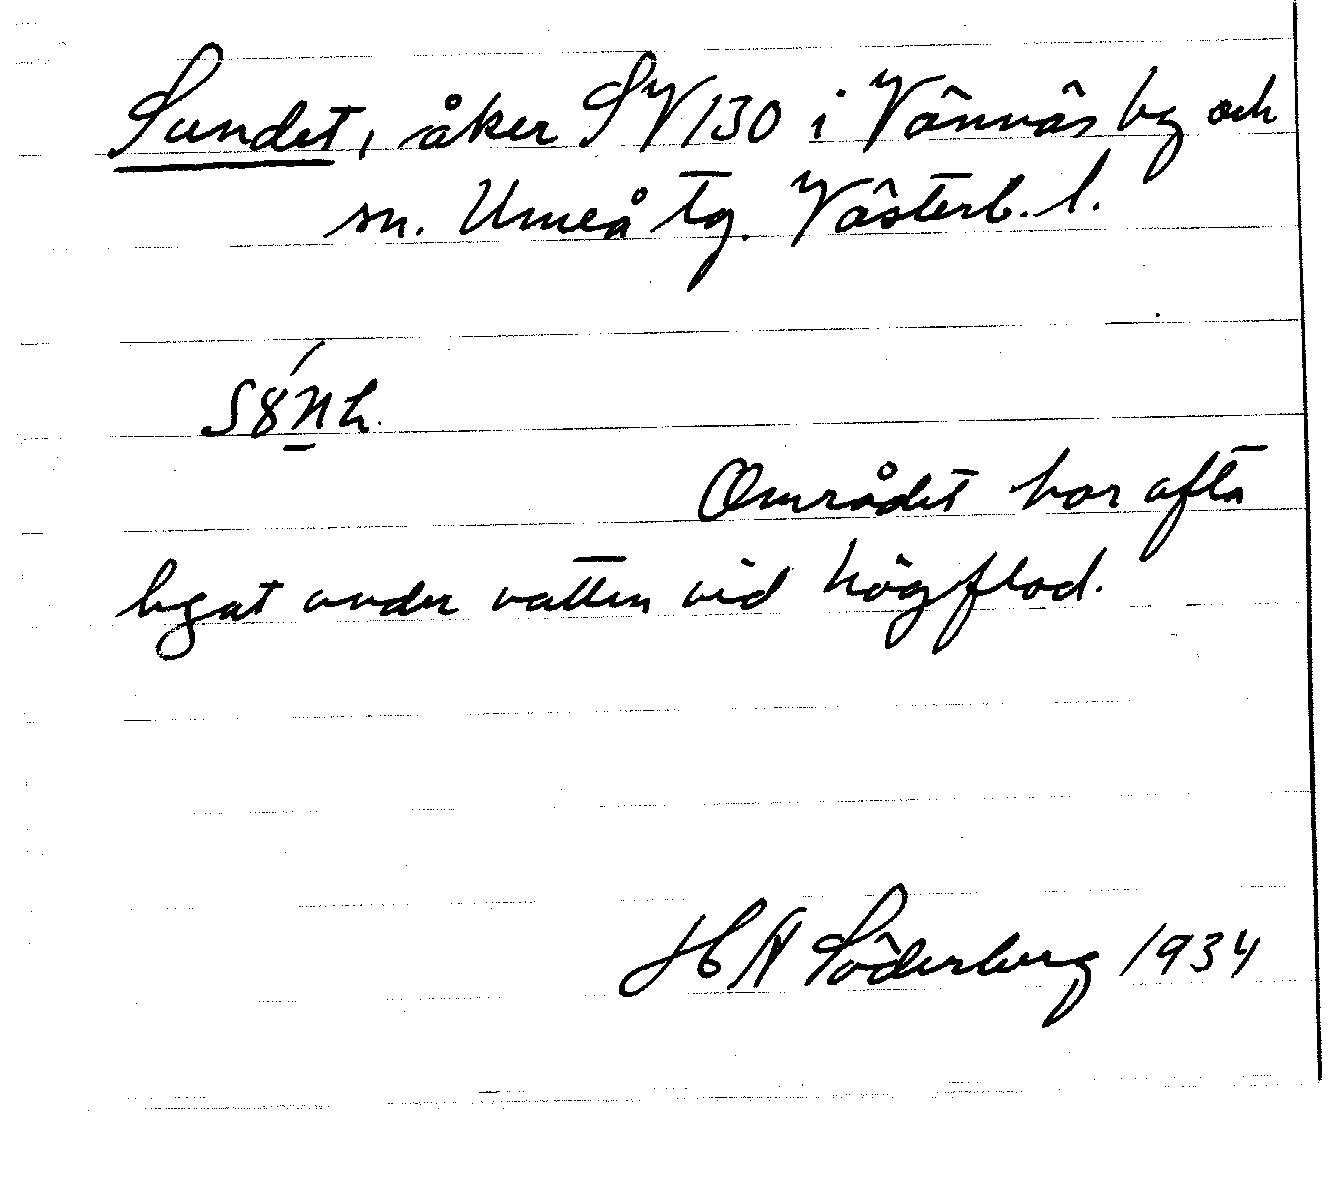 Sundet, åker SV130 i Vännäs by och
sn. Umeå tg. Västerb. l.
Området har ofta
legat under vatten vid högflod.
H A Söderberg 1934